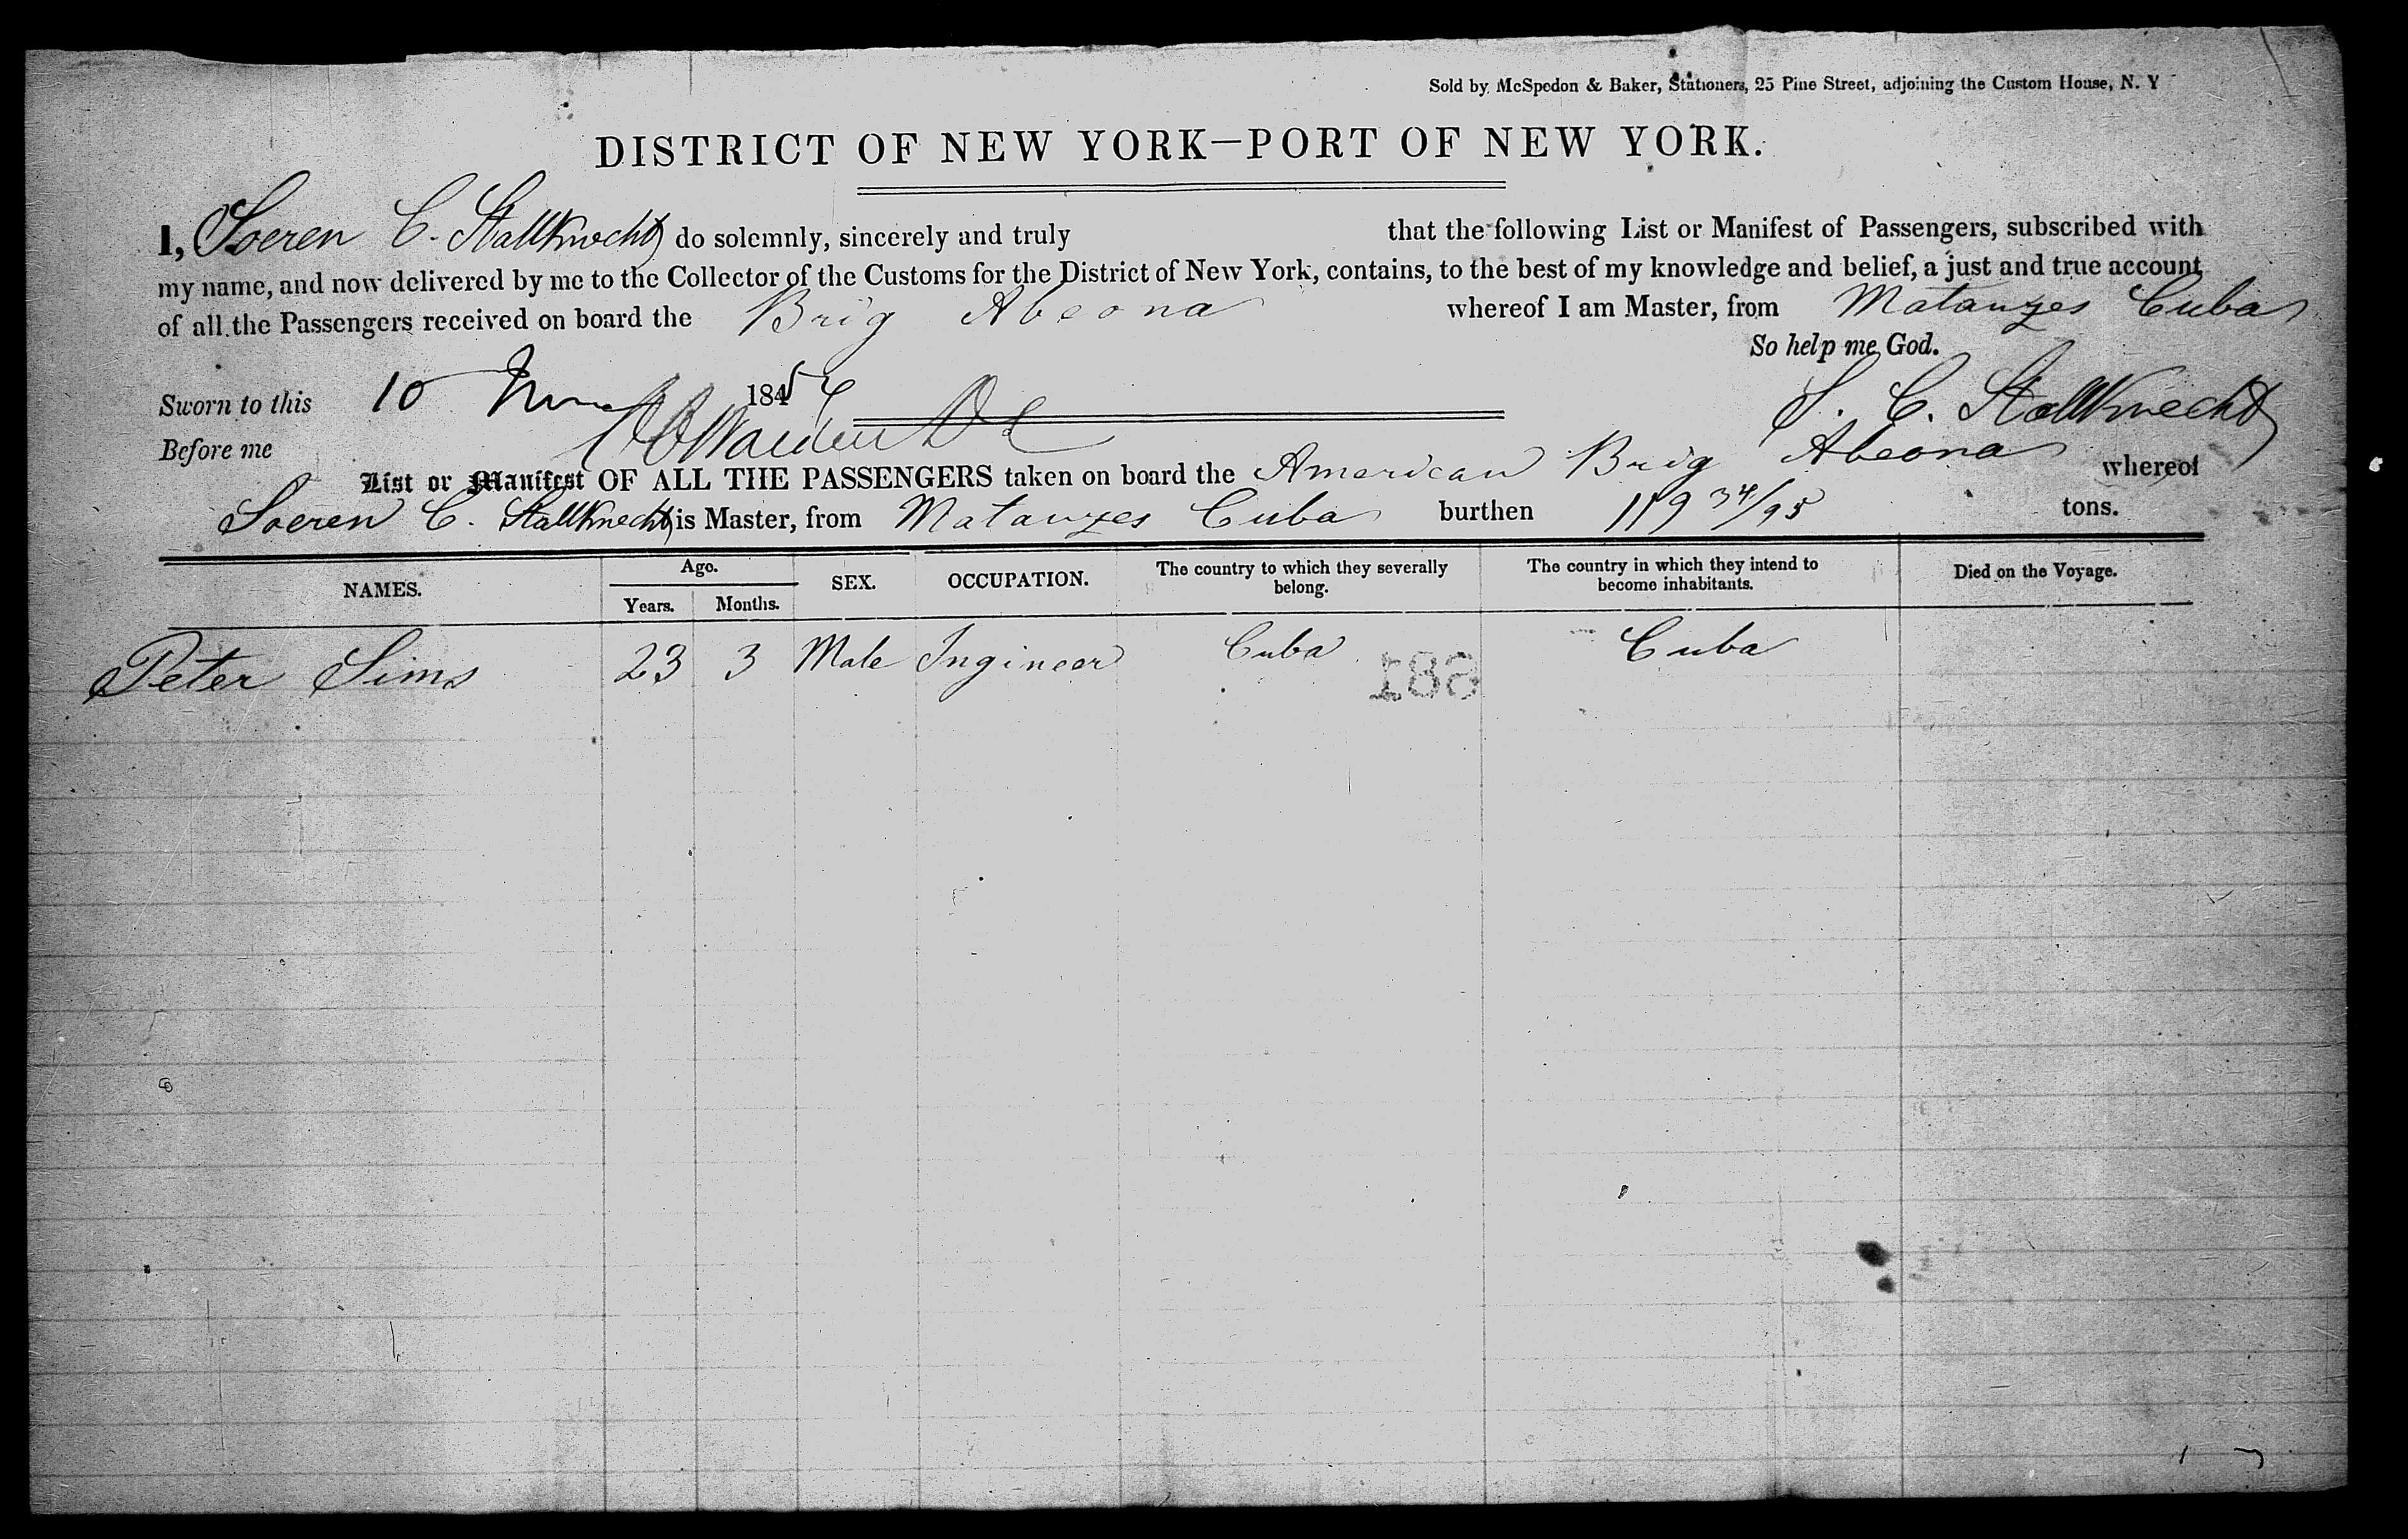 Sold by McSpedon & Baker, Stationers, 25 Pine Street, adjoining the Custom House, N. Y
DISTRICT OF NEW YORK—PORT OF NEW YORK.
I, Soeren C. Stallknecht do solemnly, sincerely and truly that the following List or Manifest of Passengers, subscribed with
my name, and now delivered by me to the Collector of the Customs for the District of New York, contains, to the best of my knowledge and belief, a just and true account
of all the Passengers received on board the Brig Abeona whereof I am Master, from Matanzes Cuba
So help me God.
Sworn to this 10 184
S. C. Stallknecht
Before me
List or Manifest OF ALL THE PASSENGERS taken on board the American Brig Abeona whereof
Soeren C. Stallknecht is Master, from Matanzes Cuba burthen 119 34/95 tons.
NAMES. Age. Years. Months. SEX. OCCUPATION. The country to which they severally belong. The country in which they intend to become inhabitants. Died on the Voyage.
Peter Sims 23 3 Male Ingineer Cuba Cuba